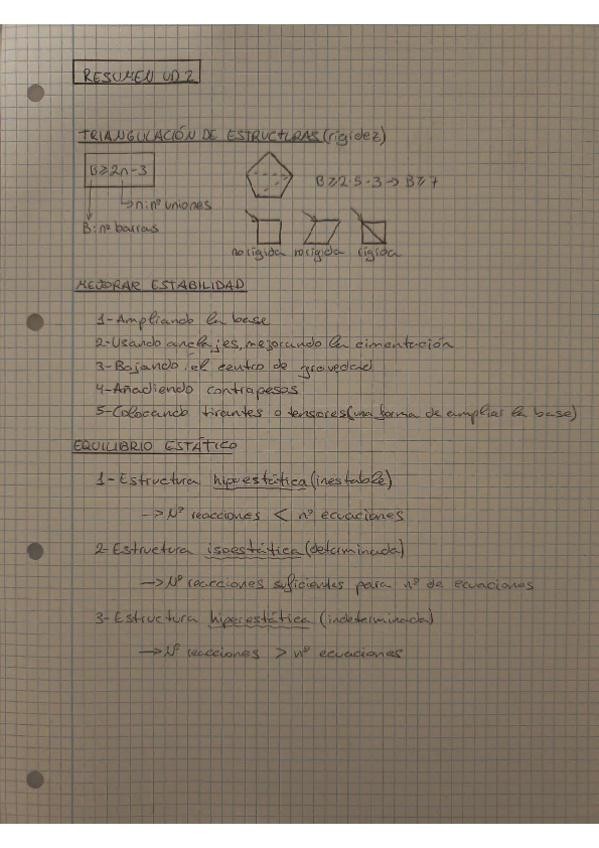 RESUMEN UD.2
TRIANGULACIÓN DE ESTRUCTURAS (rigidez)
B≥2n-3
B≥2·5-3→B≥7
n:nº uniones
B:nº barras
no rígida no rígida rígida
MEJORAR ESTABILIDAD
1-Ampliando la base
2-Usando anclajes, mejorando la cimentación
3-Bajando el centro de gravedad
4-Añadiendo contrapesos
5-Colocando tirantes o tensores (una forma de ampliar la base)
EQUILIBRIO ESTÁTICO
1-Estructura hipoestática (inestable)
→Nº reacciones < nº ecuaciones
2-Estructura isoestática (determinada)
→Nº reacciones suficientes para nº de ecuaciones
3-Estructura hiperestática (indeterminada)
→Nº reacciones > nº ecuaciones